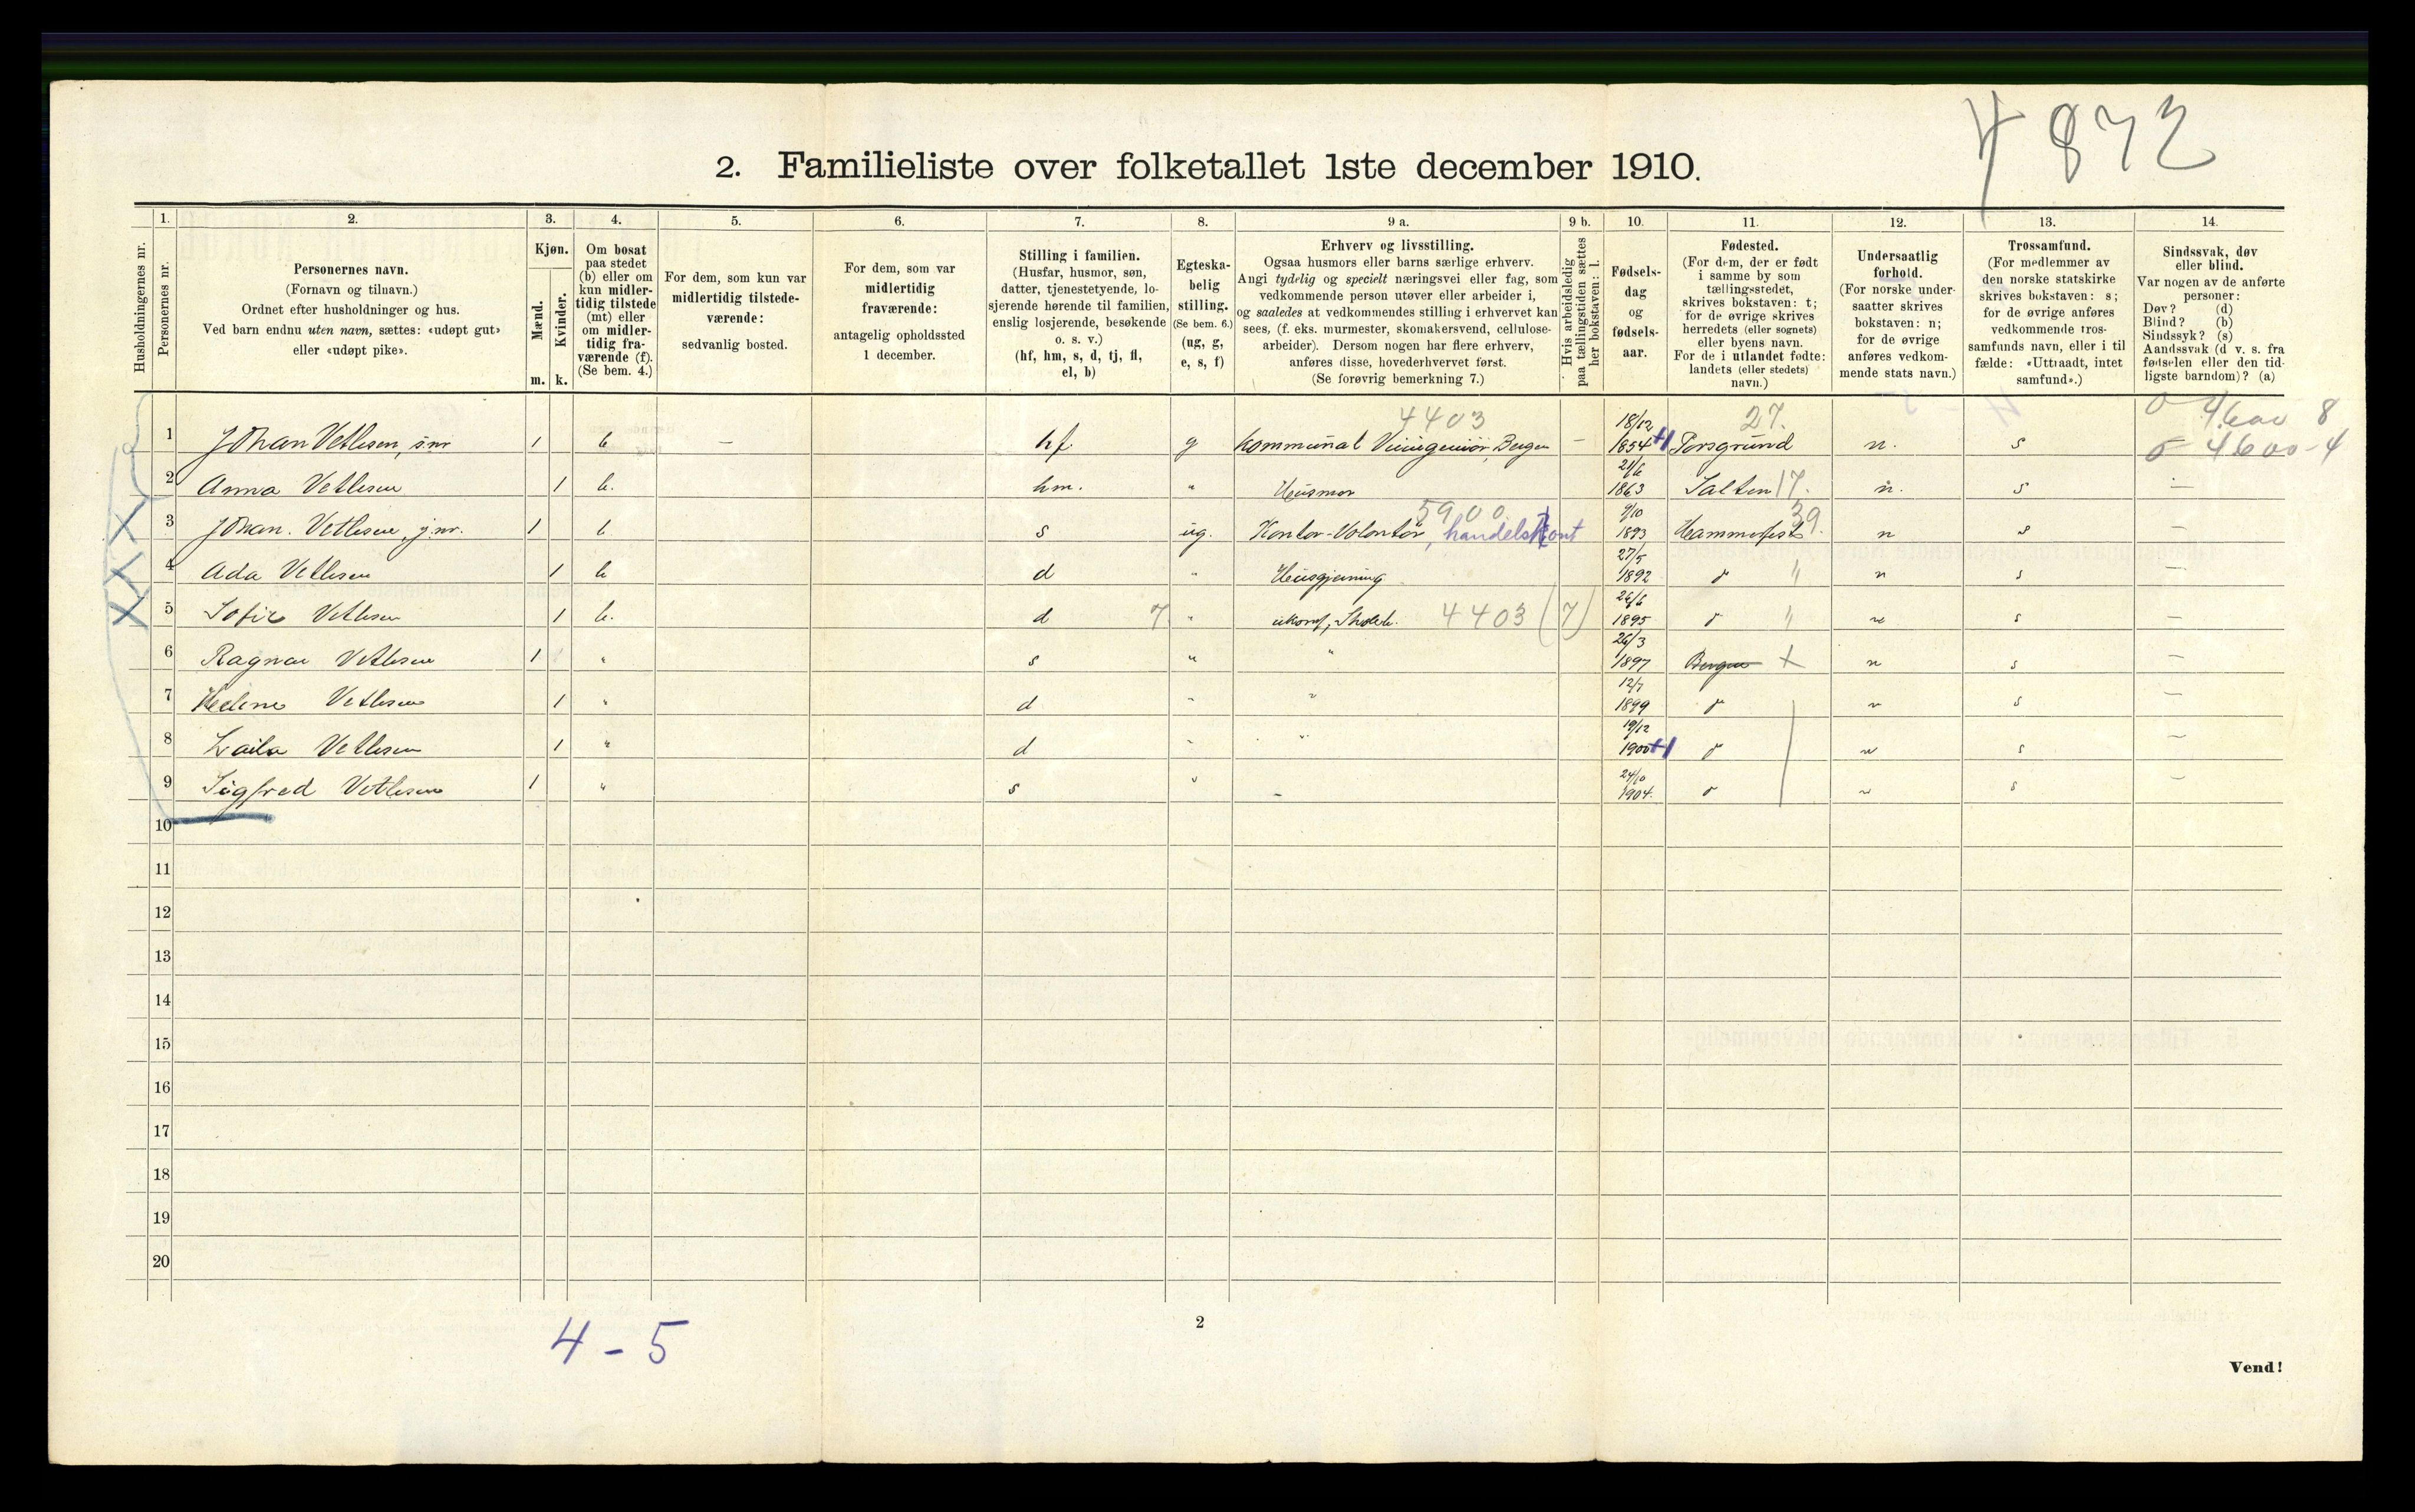 4 872
2. Familieliste over folketallet 1ste december 1910.
1. 2. 3. 4. 5. 6. 7. 8. 9 a. 9 b. 10. 11. 12. 13. 14.
Husholdningernes nr.
Personernes nr.
Personernes navn.
(Fornavn og tilnavn.)
Ordnet efter husholdninger og hus.
Ved barn endnu uten navn, sættes: «udøpt gut»
eller «udøpt pike».
Kjøn.
Mænd.
Kvinder.
m. k.
Om bosat
paa stedet
(b) eller om
kun midler-
tidig tilstede
(mt) eller
om midler-
tidig fra-
værende (f).
(Se bem. 4.)
For dem, som kun var
midlertidig tilstede-
værende:
sedvanlig bosted.
For dem, som var
midlertidig
fraværende:
antagelig opholdssted
1 december.
Stilling i familien.
(Husfar, husmor, søn,
datter, tjenestetyende, lo-
sjerende hørende til familien,
enslig losjerende, besøkende
o. s. v.)
(hf, hm, s, d, tj, fl,
el, b)
Egteska-
belig
stilling.
(Se bem. 6.)
(ug, g,
e, s, f)
Erhverv og livsstilling.
Ogsaa husmors eller barns særlige erhverv.
Angi tydelig og specielt næringsvei eller fag, som
vedkommende person utøver eller arbeider i,
og saaledes at vedkommendes stilling i erhvervet kan
sees, (f. eks. murmester, skomakersvend, cellulose-
arbeider). Dersom nogen har flere erhverv,
anføres disse, hovederhvervet først.
(Se forøvrig bemerkning 7.)
Hvis arbeidsledig
paa tællingstiden sættes
her bokstaven: l.
Fødsels-
dag
og
fødsels-
aar.
Fødested.
(For dem, der er født
i samme by som
tællingsstedet,
skrives bokstaven: t;
for de øvrige skrives
herredets (eller sognets)
eller byens navn.
For de i utlandet fødte:
landets (eller stedets)
navn.)
Undersaatlig
forhold.
(For norske under-
saatter skrives
bokstaven: n;
for de øvrige
anføres vedkom-
mende stats navn.)
Trossamfund.
(For medlemmer av
den norske statskirke
skrives bokstaven: s;
for de øvrige anføres
vedkommende tros-
samfunds navn, eller i til
fælde: «Uttraadt, intet
samfund».)
Sindssvak, døv
eller blind.
Var nogen av de anførte
personer:
Døv? (d)
Blind? (b)
Sindssyk? (s)
Aandssvak (d v. s. fra
fødselen eller den tid-
ligste barndom)? (a)
4403 18/12 27. 0 4600 8
1 Johan Vetlesen, snr 1 b – hf g Kommunal Viceingeniør, Bergen – 1854 +1 Porsgrund n. s 4600-4
2 Anna Vetlesen 1 b. hm. " Husmor 21/6 1863 Salten 17. n. s –
3 Johan. Vetlesen, jnr. 1 b s ug. Kontor-Volontør, handelskont 5900 9/10 1893 Hammerfest 39. n s –
4 Ada Vetlesen 1 b d " Husgjerning 27/5 1892 d " n s –
5 Sofie Vetlesen 1 b. d 7 " ukonf, Skoleb. 4403 (7) 26/6 1895 d " n s –
6 Ragnar Vetlesen 1 " s " " 26/3 1897 Bergen + n s –
7 Helene Vetlesen 1 " d " " 12/7 1899 d n s –
8 Laila Vetlesen 1 " d " " 19/12 1900 +1 d n s –
9 Sigfred Vetlesen 1 " s " – 24/10 1904. d n s –
10
11
12
13
14
15
16
17
18
19
20
4 - 5
2
Vend!